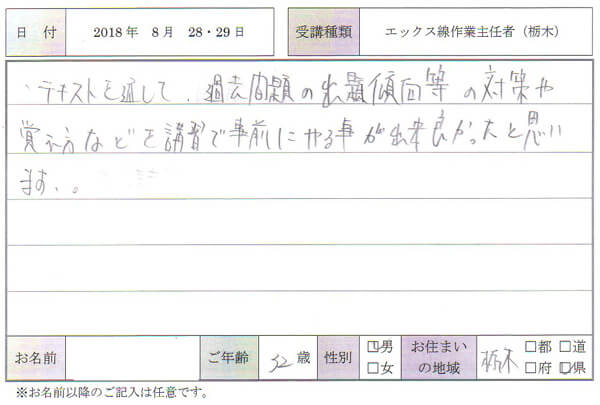 日 付 2018年 8月 28・29日 受講種類 エックス線作業主任者（栃木）
・テキストを通して、過去問題の出題傾向等の対策や
覚え方などを講習で事前にやる事が出来良かったと思い
ます。。
お名前 ご年齢 52歳 性別 ☑男 □女 お住まいの地域 栃木 □都 □道 □府 ☑県
※お名前以降のご記入は任意です。